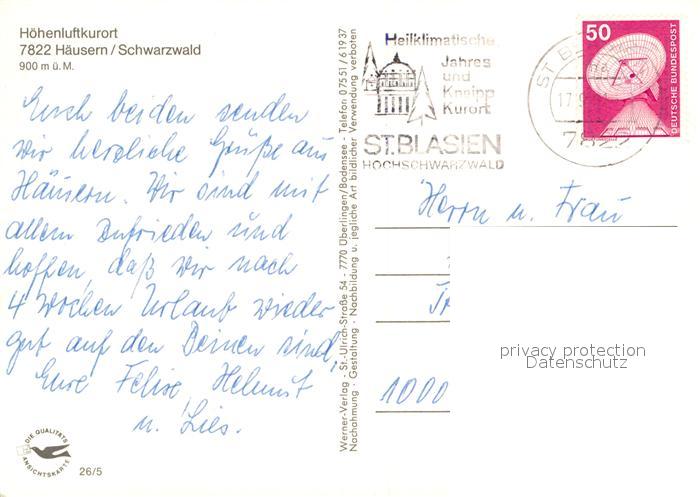 Höhenluftkurort
7822 Häusern / Schwarzwald
900 m ü. M.
Euch beiden senden
wir herzliche Grüße aus
Häusern. Wir sind mit
allem zufrieden und
hoffen, daß wir nach
4 Wochen Urlaub wieder
gut auf den Beinen sind,
Eure Felise, Helmut
u. Lies.
DIE QUALITÄTS
ANSICHTSKARTE
26/5
Werner-Verlag · St.-Ulrich-Straße 54 - 7770 Überlingen/Bodensee · Telefon 07551/61937
Nachahmung · Gestaltung · Nachbildung u. jegliche Art bildlicher Verwendung verboten
Heilklimatischer
Jahres
und
Kneipp
Kurort
ST. BLASIEN
HOCHSCHWARZWALD
ST B
17.
7822
50
DEUTSCHE BUNDESPOST
Herrn u. Frau
1000
privacy protection
Datenschutz